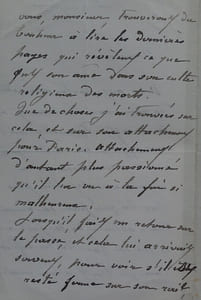 vous, monsieur, trouverez du
bonheur à lire les dernières
pages qui révèlent ce que
fut son âme dans son culte
religieux des morts.
Que de choses j'ai trouvées sur
cela et sur son attachement
pour Paris. Attachement
d'autant plus passionné
qu'il l'a vu à la fois si
malheureux.
Lorsqu'il fait un retour sur
le passé, et cela lui arrivait
souvent, pour voir s'il
resté ferme sur son